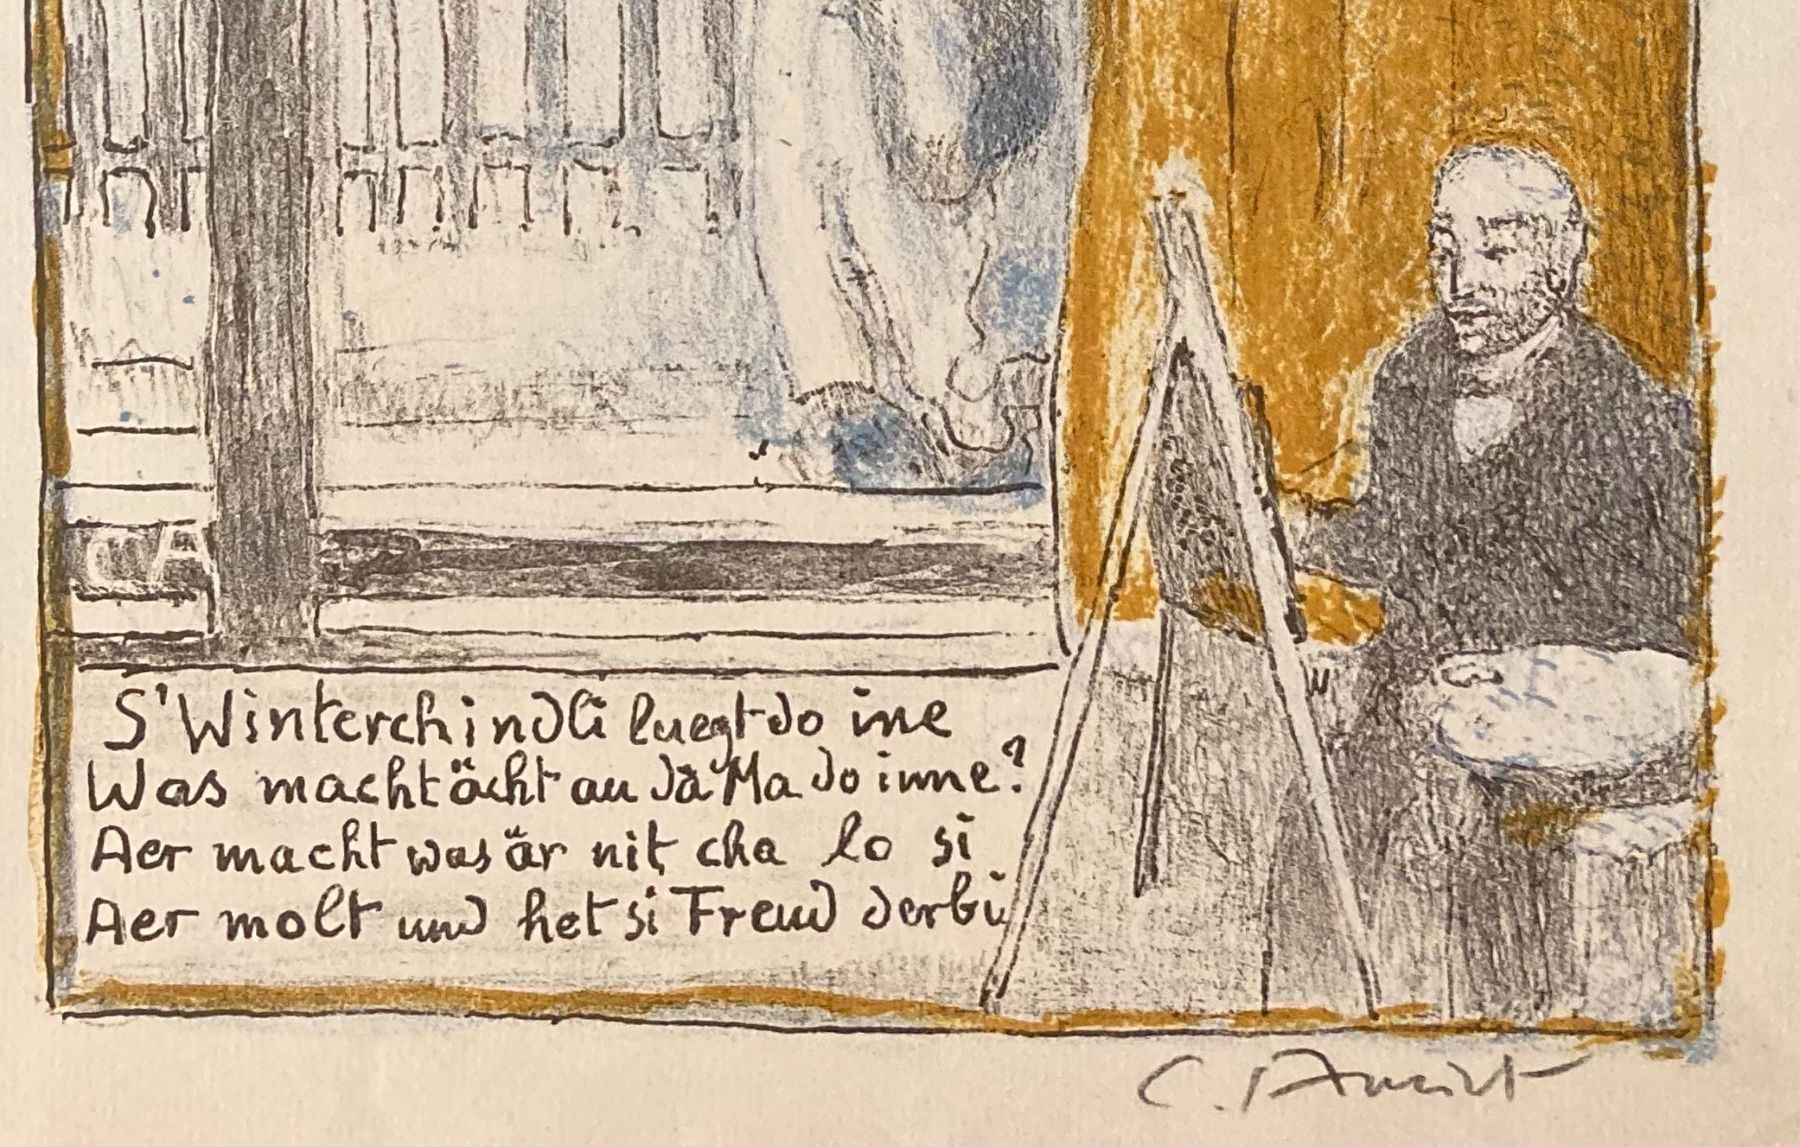 CA
S' Winterchindli luegt do ine
Was macht ächt au dä Ma do inne?
Aer macht was är nit cha lo si
Aer molt und het si Freud derbi
C. Amiet